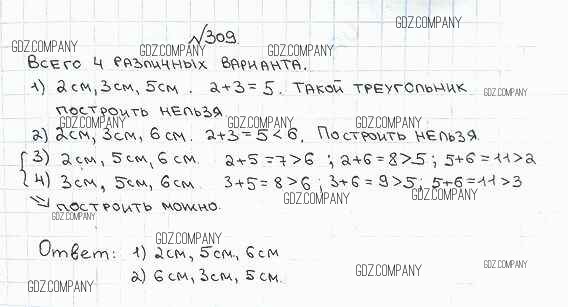 №309.
GDZ.COMPANY
GDZ.COMPANY GDZ.COMPANY GDZ.COMPANY
Всего 4 различных варианта.
1) 2см, 3см, 5см. 2+3=5. Такой треугольник
GDZ.COMPANY
построить нельзя
GDZ.COMPANY GDZ.COMPANY GDZ.COMPANY
2) 2см, 3см, 6см. 2+3=5<6. Построить нельзя.
3) 2см, 5см, 6см. 2+5=7>6 ; 2+6=8>5; 5+6=11>2
4) 3см, 5см, 6см. 3+5=8>6; 3+6=9>5; 5+6=11>3
GDZ.COMPANY GDZ.COMPANY
=> построить можно.
GDZ.COMPANY
GDZ.COMPANY
Ответ: 1) 2см, 5см, 6см
2) 6см, 3см, 5см.
GDZ.COMPANY GDZ.COMPANY GDZ.COMPANY